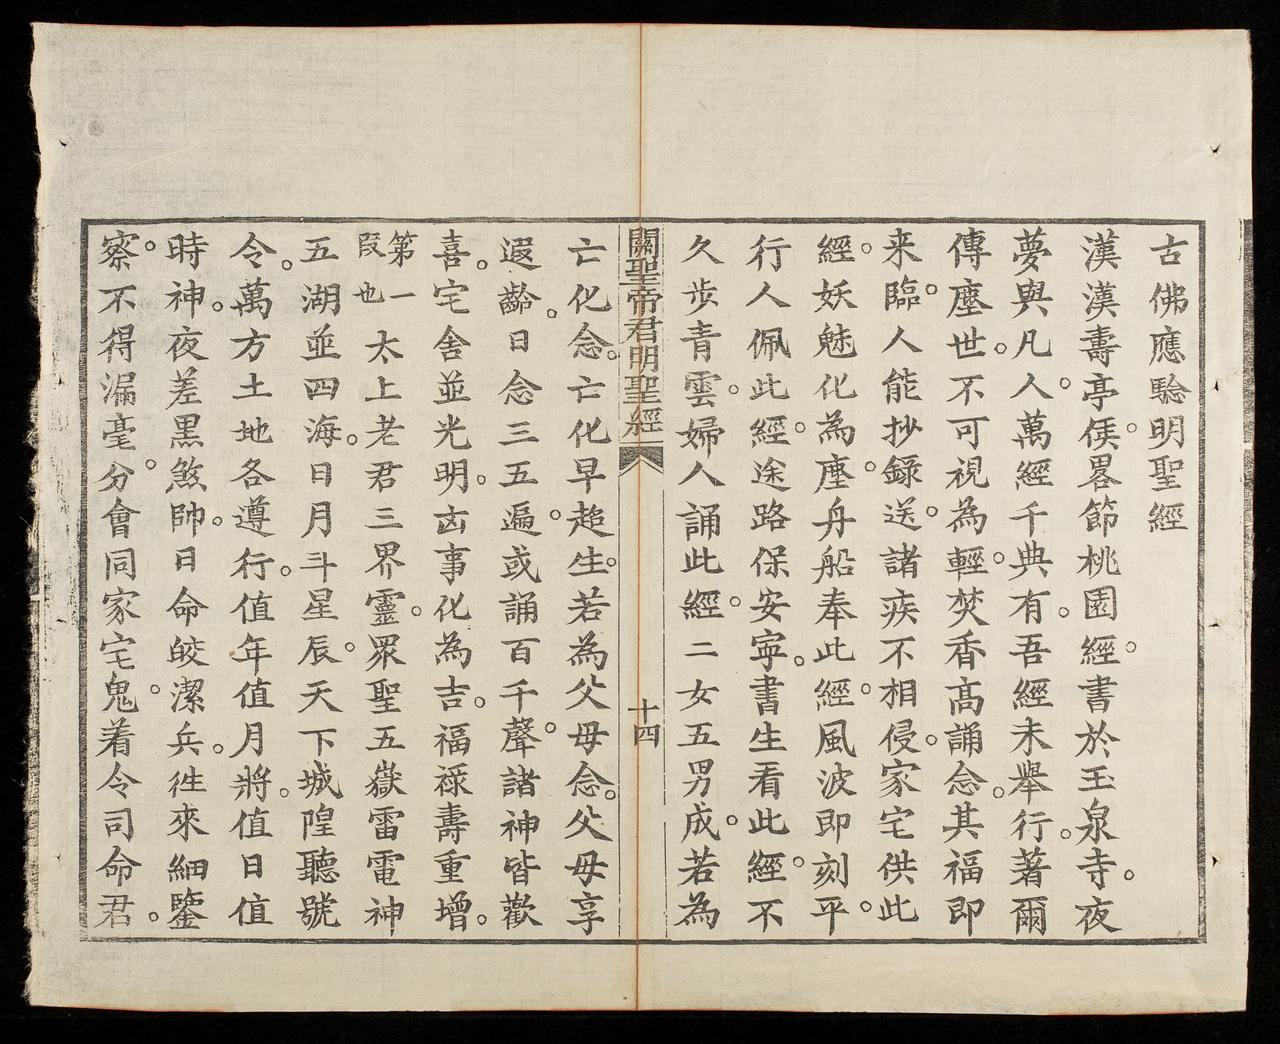 古佛應驗明聖經
漢漢壽亭侯。畧節桃園經。書於玉泉寺。夜
夢與凡人。萬經千典有。吾經未舉行。著爾
傳塵世。不可視為輕。焚香高誦念。其福即
来臨。人能抄錄送。諸疾不相侵。家宅供此
經。妖魅化為塵。舟船奉此經。風波即刻平。
行人佩此經。途路保安寧。書生看此經。不
久步青雲。婦人誦此經。二女五男成。若為
關聖帝君明聖經 十四
亡化念。亡化早超生。若為父母念。父母享
遐齡。日念三五遍。或誦百千聲。諸神皆歡
喜。宅舍並光明。凶事化為吉。福祿壽重增。
第一段也 太上老君三界靈。眾聖五嶽雷電神
五湖並四海。日月斗星辰。天下城隍聽號
令。萬方土地各遵行。值年值月將。值日值
時神。夜差黑煞帥。日命皎潔兵。徃來細鑒
察。不得漏毫分。會同家宅鬼。着令司命君。